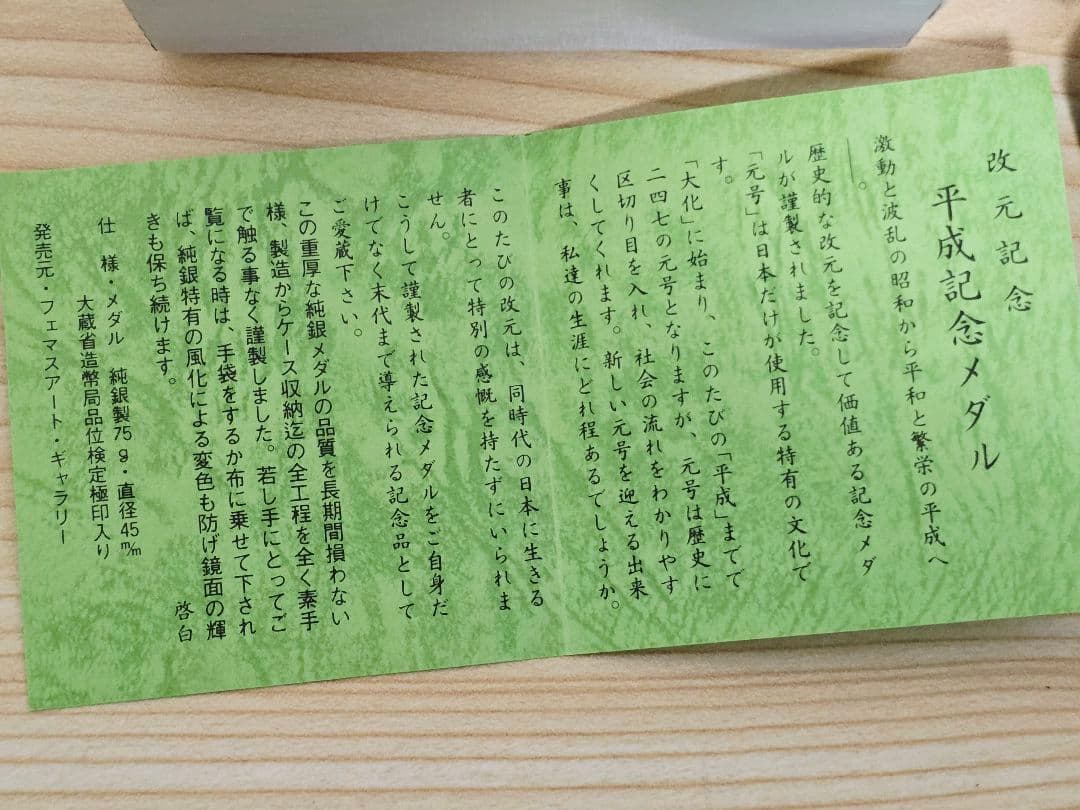 改元記念
平成記念メダル
激動と波乱の昭和から平和と繁栄の平成へ
――。
歴史的な改元を記念して価値ある記念メダ
ルが謹製されました。
「元号」は日本だけが使用する特有の文化で
す。
「大化」に始まり、このたびの「平成」までで
二四七の元号となりますが、元号は歴史に
区切り目を入れ、社会の流れをわかりやす
くしてくれます。新しい元号を迎える出来
事は、私達の生涯にどれ程あるでしょうか。
このたびの改元は、同時代の日本に生きる
者にとって特別の感慨を持たずにいられま
せん。
こうして謹製された記念メダルをご自身だ
けでなく末代まで導えられる記念品として
ご愛蔵下さい。
この重厚な純銀メダルの品質を長期間損わない
様、製造からケース収納迄の全工程を全く素手
で触る事なく謹製しました。若し手にとってご
覧になる時は、手袋をするか布に乗せて下され
ば、純銀特有の風化による変色も防げ鏡面の輝
きも保ち続けます。
啓白
仕様・メダル 純銀製75g・直径45㎜
大蔵省造幣局品位検定極印入り
発売元・フェマスアート・ギャラリー